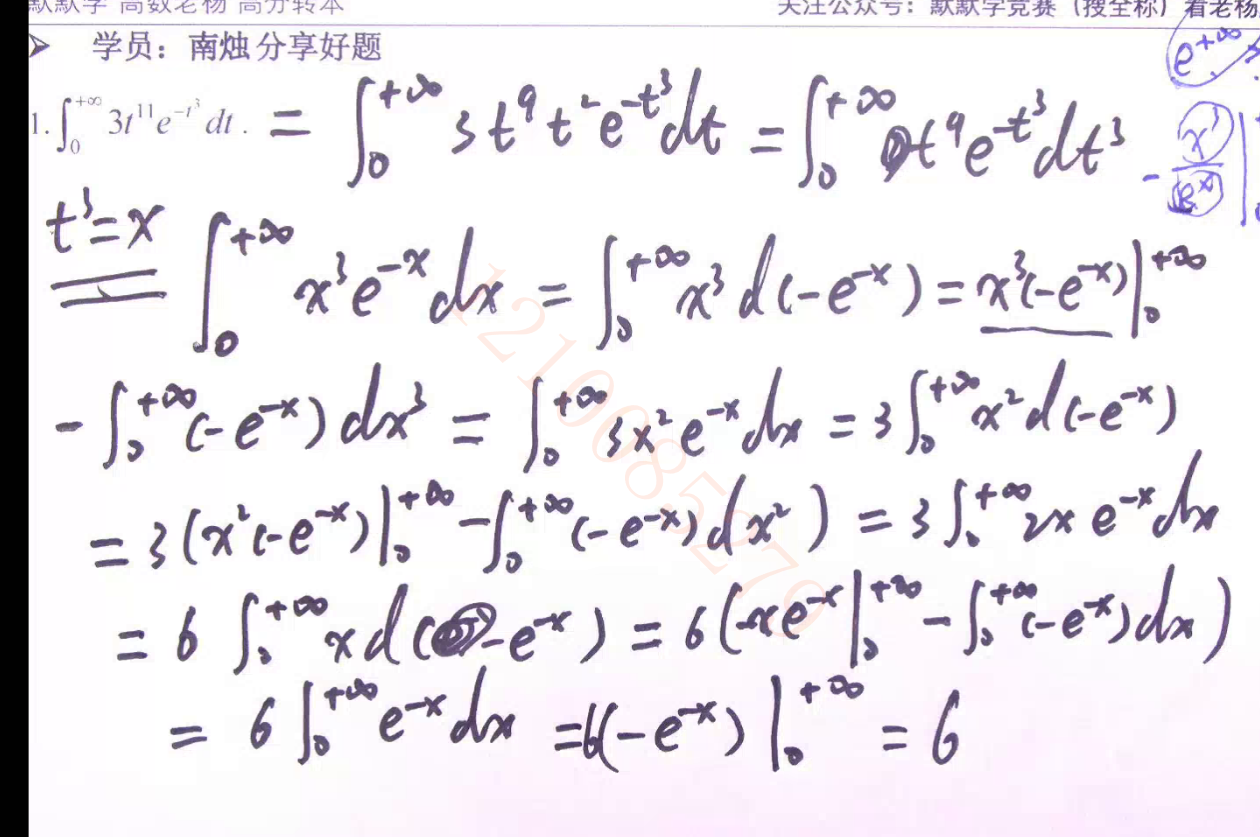 默默学 高数老杨 高分转本
关注公众号：默默学竞赛（搜全称）看老杨
➤ 学员：南烛 分享好题
e^{+∞}
1. ∫_0^{+∞} 3t^{11}e^{-t^3} dt . = ∫_0^{+∞} 3t^9 t^2 e^{-t^3} dt = ∫_0^{+∞} t^9 e^{-t^3} dt^3
- x^3/e^x |
t^3=x ∫_0^{+∞} x^3 e^{-x} dx = ∫_0^{+∞} x^3 d(-e^{-x}) = x^3(-e^{-x}) |_0^{+∞}
- ∫_0^{+∞} (-e^{-x}) dx^3 = ∫_0^{+∞} 3x^2 e^{-x} dx = 3∫_0^{+∞} x^2 d(-e^{-x})
= 3(x^2(-e^{-x}) |_0^{+∞} - ∫_0^{+∞} (-e^{-x}) dx^2) = 3∫_0^{+∞} 2x e^{-x} dx
= 6 ∫_0^{+∞} x d(-e^{-x}) = 6(-xe^{-x} |_0^{+∞} - ∫_0^{+∞} (-e^{-x}) dx)
= 6 ∫_0^{+∞} e^{-x} dx = 6(-e^{-x}) |_0^{+∞} = 6
1210685279